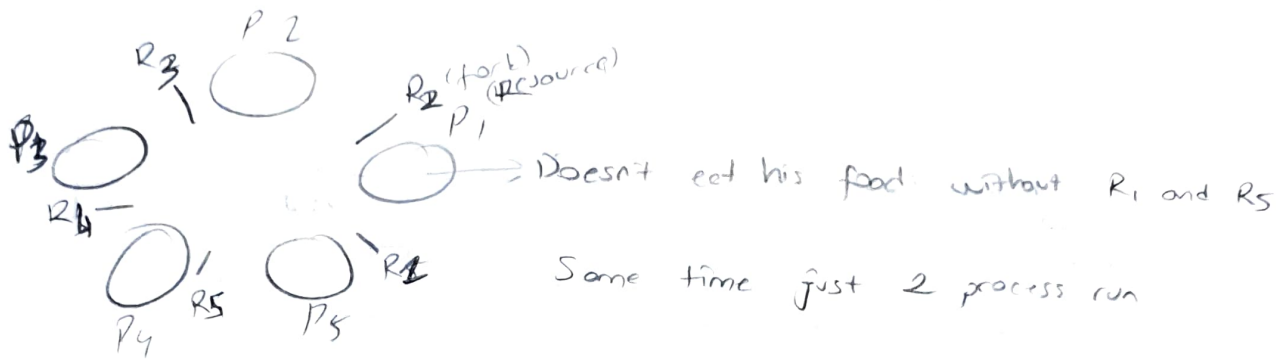 P2
R3
R2 (fork)
(Resource)
P1
P3
Doesn't eet his food without R1 and R5
R4
R1
Same time just 2 process run
R5
P5
P4